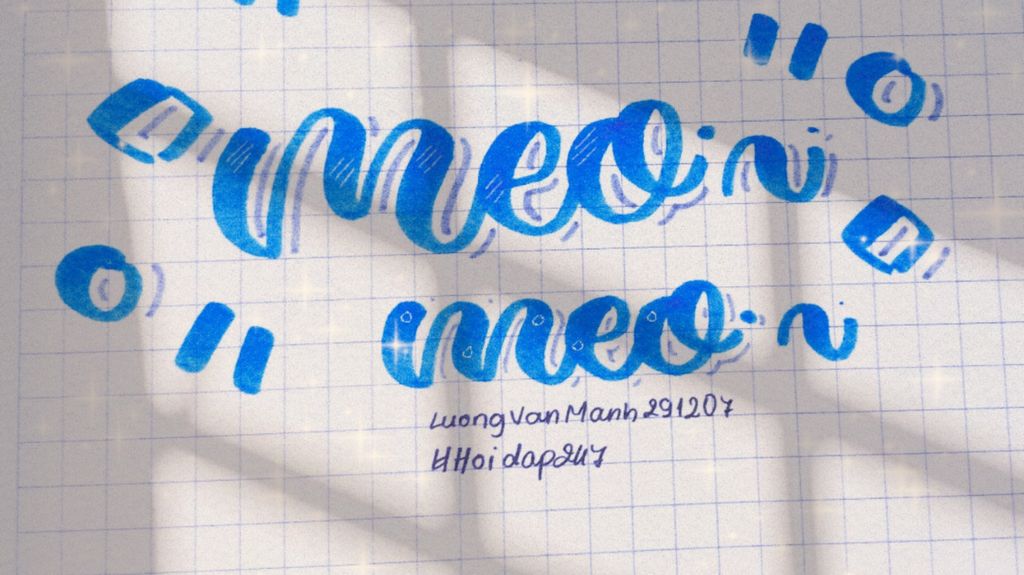 meo.~
meo.~
LuongVanManh291207
#Hoidap247